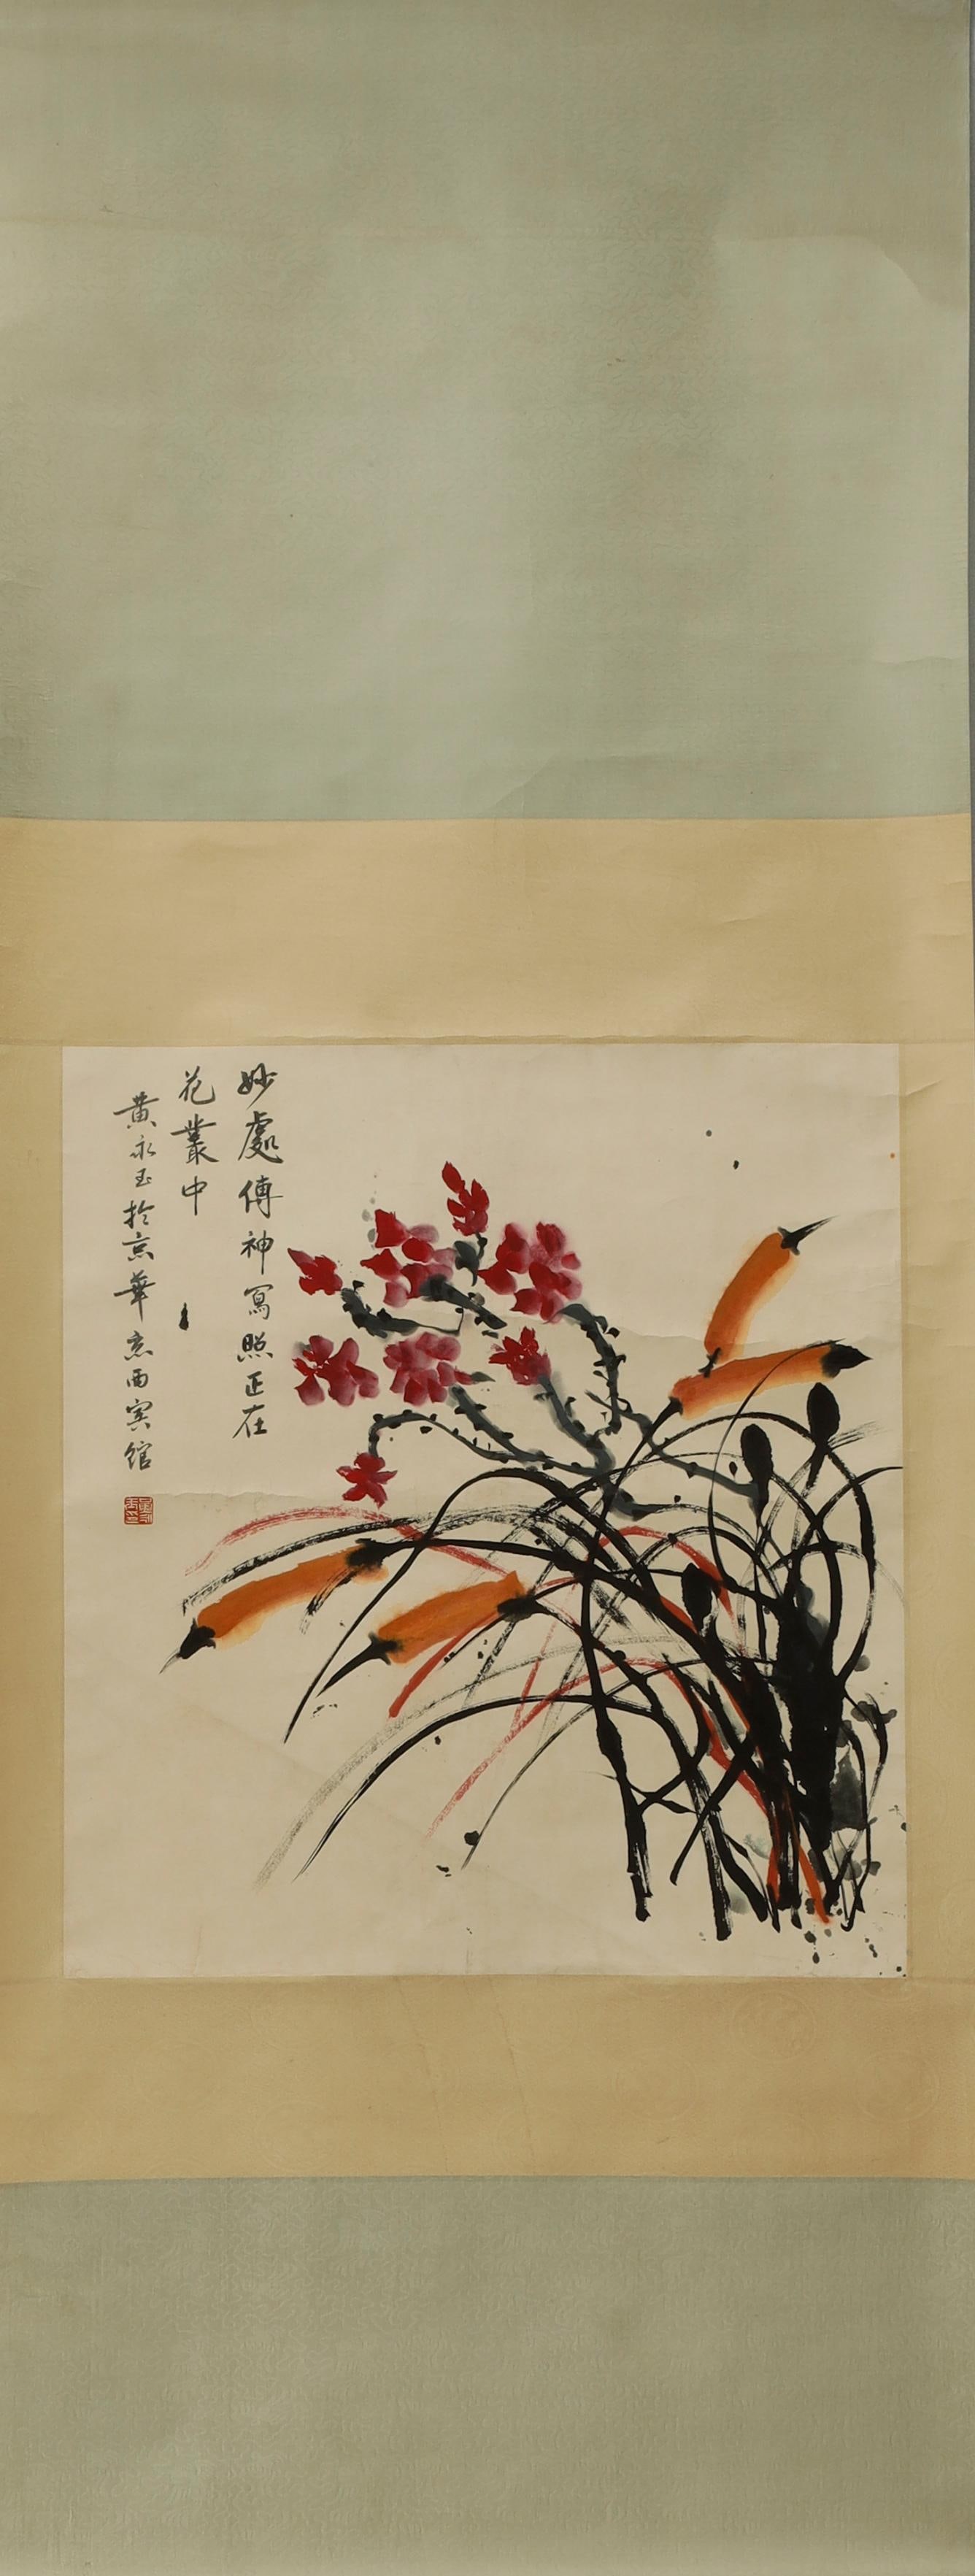 妙處傳神寫照正在
花叢中
黃永玉於京華京西宾館